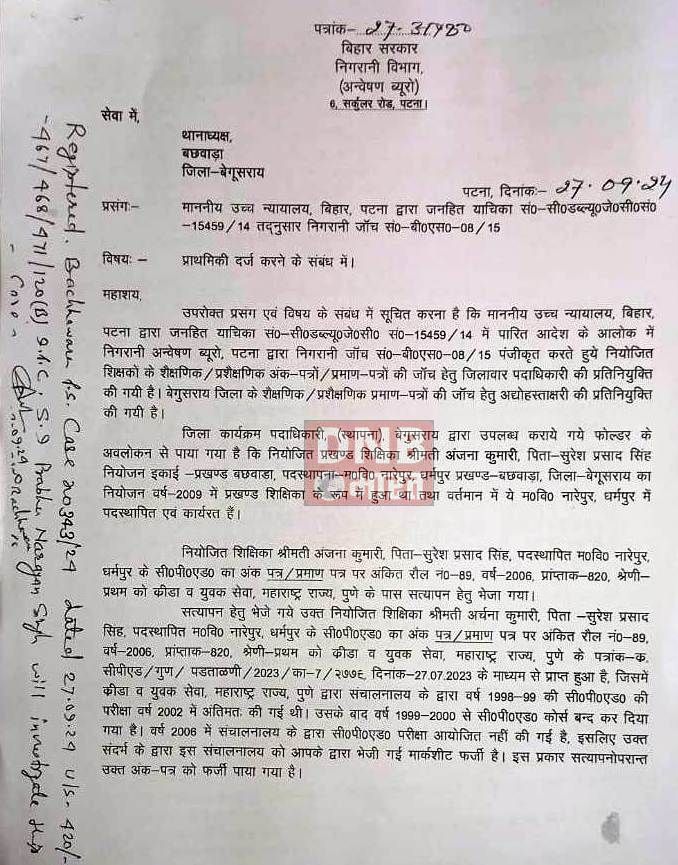 पत्रांक:- 27.
बिहार सरकार
निगरानी विभाग,
(अन्वेषण ब्यूरो)
6, सर्कुलर रोड, पटना।
सेवा में,
थानाध्यक्ष,
बछवाड़ा,
जिला-बेगूसराय
पटना, दिनांक:- 27.09.24
प्रसंग:- माननीय उच्च न्यायालय, बिहार, पटना द्वारा जनहित याचिका सं०-सी०डब्ल्यू०जे०सी०सं०
-15459/14 तद्नुसार निगरानी जाँच सं०-बी०एस०-08/15
विषय:- प्राथमिकी दर्ज करने के संबंध में।
महाशय,
उपरोक्त प्रसंग एवं विषय के संबंध में सूचित करना है कि माननीय उच्च न्यायालय, बिहार,
पटना द्वारा जनहित याचिका सं०-सी०डब्ल्यू०जे०सी० सं०-15459/14 में पारित आदेश के आलोक में
निगरानी अन्वेषण ब्यूरो, पटना द्वारा निगरानी जाँच सं०-बी०एस०-08/15 पंजीकृत करते हुये नियोजित
शिक्षकों के शैक्षणिक/प्रशैक्षणिक अंक-पत्रों/प्रमाण-पत्रों की जाँच हेतु जिलावार पदाधिकारी की प्रतिनियुक्ति
की गयी है। बेगुसराय जिला के शैक्षणिक/प्रशैक्षणिक प्रमाण-पत्रों की जाँच हेतु अद्योहस्ताक्षरी की प्रतिनियुक्ति
की गयी है।
जिला कार्यक्रम पदाधिकारी, (स्थापना), बेगुसराय द्वारा उपलब्ध कराये गये फोल्डर के
अवलोकन से पाया गया है कि नियोजित प्रखण्ड शिक्षिका श्रीमती अंजना कुमारी, पिता-सुरेश प्रसाद सिंह
नियोजन इकाई -प्रखण्ड बछवाड़ा, पदस्थापना-म०वि० नारेपुर, धर्मपुर प्रखण्ड-बछवाड़ा, जिला-बेगूसराय का
नियोजन वर्ष-2009 में प्रखण्ड शिक्षिका के रूप में हुआ था तथा वर्तमान में ये म०वि० नारेपुर, धर्मपुर में
पदस्थापित एवं कार्यरत हैं।
नियोजित शिक्षिका श्रीमती अंजना कुमारी, पिता-सुरेश प्रसाद सिंह, पदस्थापित म०वि० नारेपुर,
धर्मपुर के सी०पी०एड० का अंक पत्र/प्रमाण पत्र पर अंकित रौल नं०-89, वर्ष-2006, प्राप्ताक-820, श्रेणी-
प्रथम को कीडा व युवक सेवा, महाराष्ट्र राज्य, पुणे के पास सत्यापन हेतु भेजा गया।
सत्यापन हेतु भेजे गये उक्त नियोजित शिक्षिका श्रीमती अर्चना कुमारी, पिता -सुरेश प्रसाद
सिंह, पदस्थापित म०वि० नारेपुर, धर्मपुर के सी०पी०एड० का अंक पत्र/प्रमाण पत्र पर अंकित रौल नं०-89,
वर्ष-2006, प्राप्ताक-820, श्रेणी-प्रथम को कीडा व युवक सेवा, महाराष्ट्र राज्य, पुणे के पत्रांक-क.
सीपीएड/गुण/ पडताळणी/2023/का-7/२७७६, दिनांक-27.07.2023 के माध्यम से प्राप्त हुआ है, जिसमें
कीडा व युवक सेवा, महाराष्ट्र राज्य, पुणे द्वारा संचालनालय के द्वारा वर्ष 1998-99 की सी०पी०एड० की
परीक्षा वर्ष 2002 में अंतिमतः की गई थी। उसके बाद वर्ष 1999-2000 से सी०पी०एड० कोर्स बन्द कर दिया
गया है। वर्ष 2006 में संचालनालय के द्वारा सी०पी०एड० परीक्षा आयोजित नहीं की गई है, इसलिए उक्त
संदर्भ के द्वारा इस संचालनालय को आपके द्वारा भेजी गई मार्कशीट फर्जी है। इस प्रकार सत्यापनोपरान्त
उक्त अंक-पत्र को फर्जी पाया गया है।
Registered. Bachhwara P.S. Case no 343/24 dated 27.09.24 U/S- 420/-
-467/468/471/120(B) I.P.C, S.I Prabhu Narayan Singh will investigate this
Case-
DNB
भारत